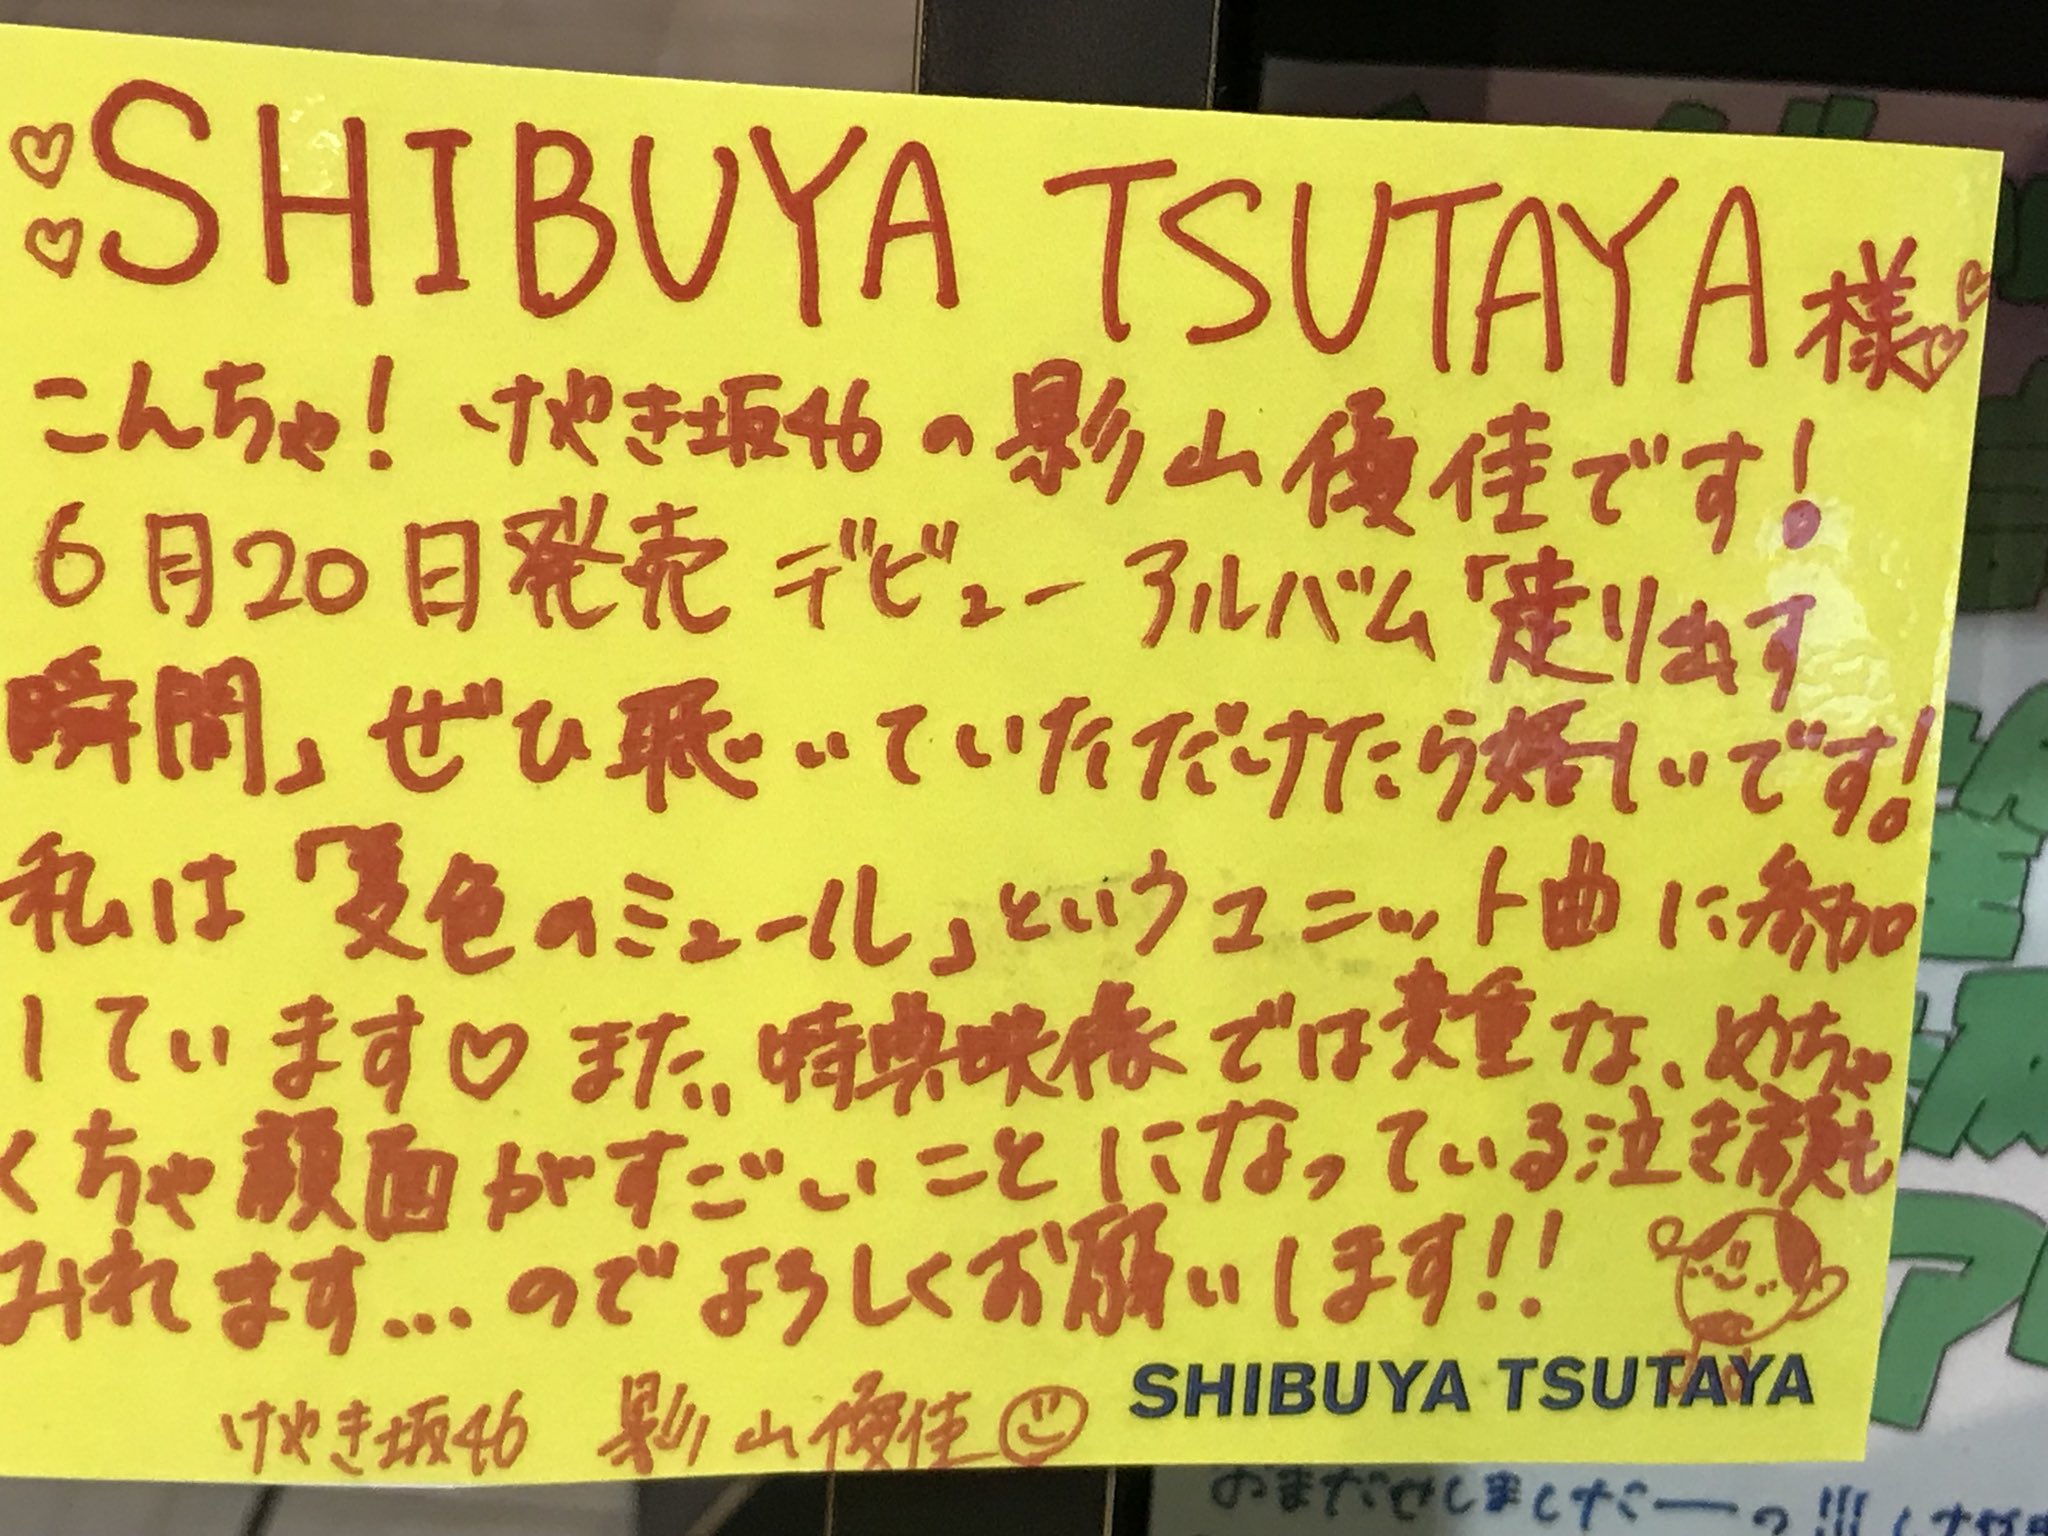 SHIBUYA TSUTAYA 様
こんちゃ! けやき坂46の影山優佳です!
6月20日発売 デビューアルバム「走り出す
瞬間」ぜひ聴いていただけたら嬉しいです!
私は「夏色のミュール」というユニット曲に参加
しています♡ また、特典映像では貴重な、めちゃ
くちゃ顔面がすごいことになっている泣き顔も
みれます...のでよろしくお願いします!!
けやき坂46 影山優佳
SHIBUYA TSUTAYA
おまたせしましたーっ!!!